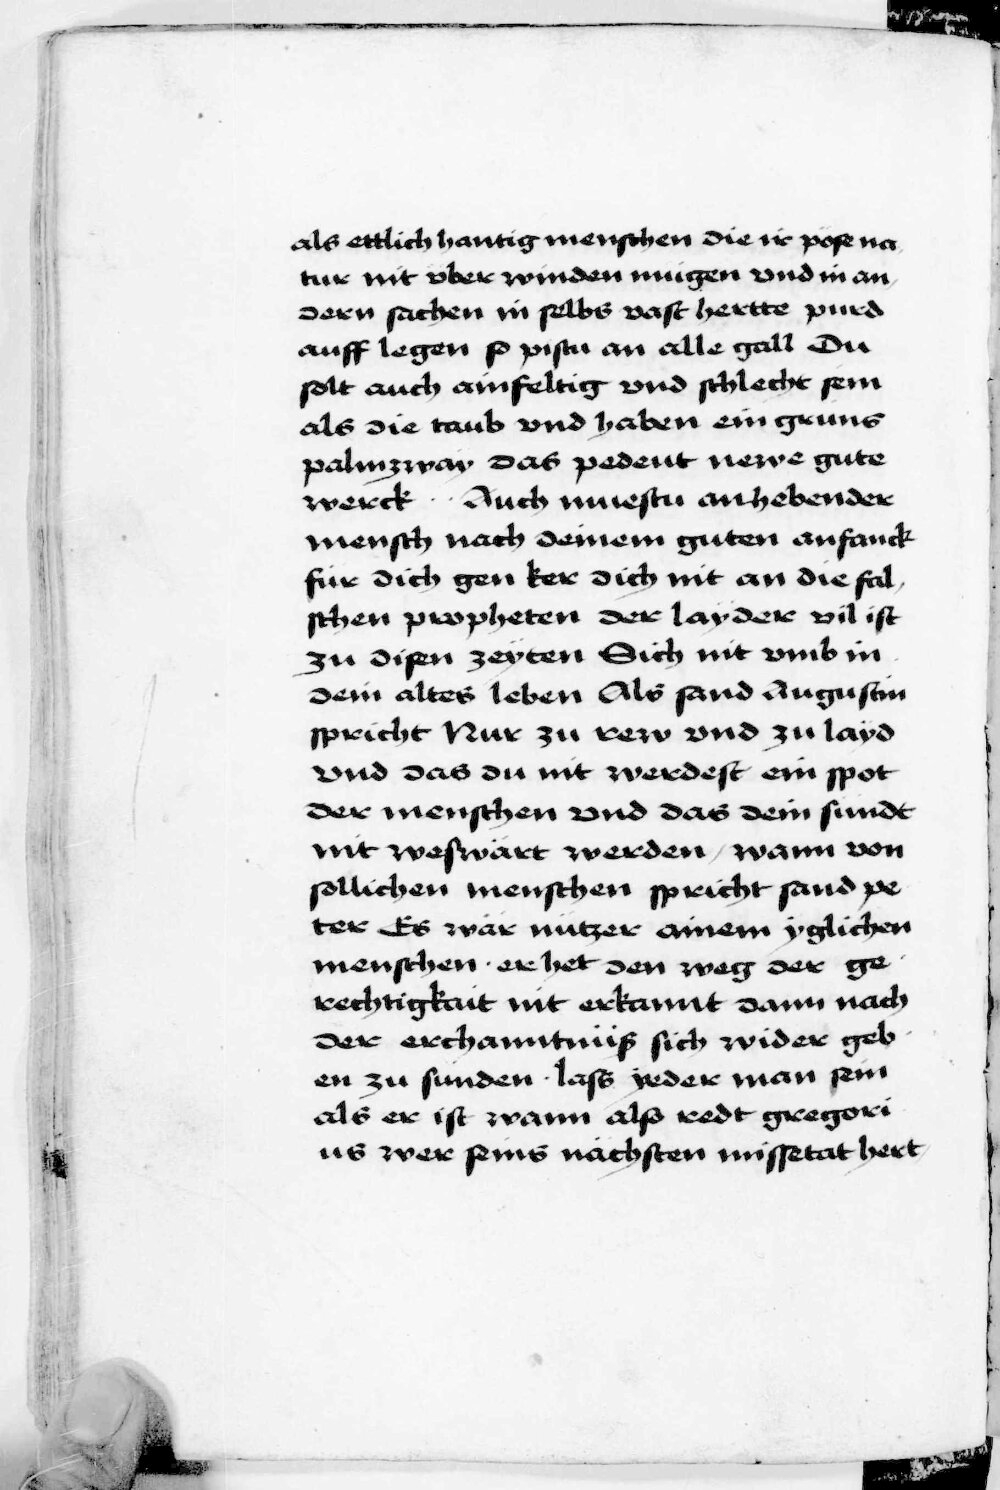 als ettlich hantig menschen die ir pöse na
tur nit vber winden mügen vnd in an
dern sachen in selbs vast hertte purd
auff legen so pistu an alle gall Du
solt auch ainfeltig vnd schlecht sein
als die taub vnd haben ein gruns
palmzway das pedeut newe gute
werck Auch muestu anhebender
mensch nach deinem guten anfanck
für dich gen ker dich nit an die fal
schen propheten der layder vil ist
zu disen zeyten Sich nit vmb in
dein altes leben Als sand Augustin
spricht Nur zu rew vnd zu layd
vnd das du nit werdest ein spot
der menschen vnd das dein sündt
nit weswärt werden / wann von
sollichen menschen spricht sand pe
ter Es wär nützer ainem yglichen
menschen · er het den weg der ge
rechtigkait nit erkannt dann nach
der erchanntnüß sich wider geb
en zu sunden · lass yeder man sein
als er ist wann also redt gregori
us wer seins nächsten missetat hert